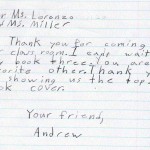 r Ms. Lorenzo
d Ms. Miller
Thank you for coming
classroom. I cant wait
book three. You are
orite other. Thank y
showing us the top
ok cover.
Your friend,
Andrew